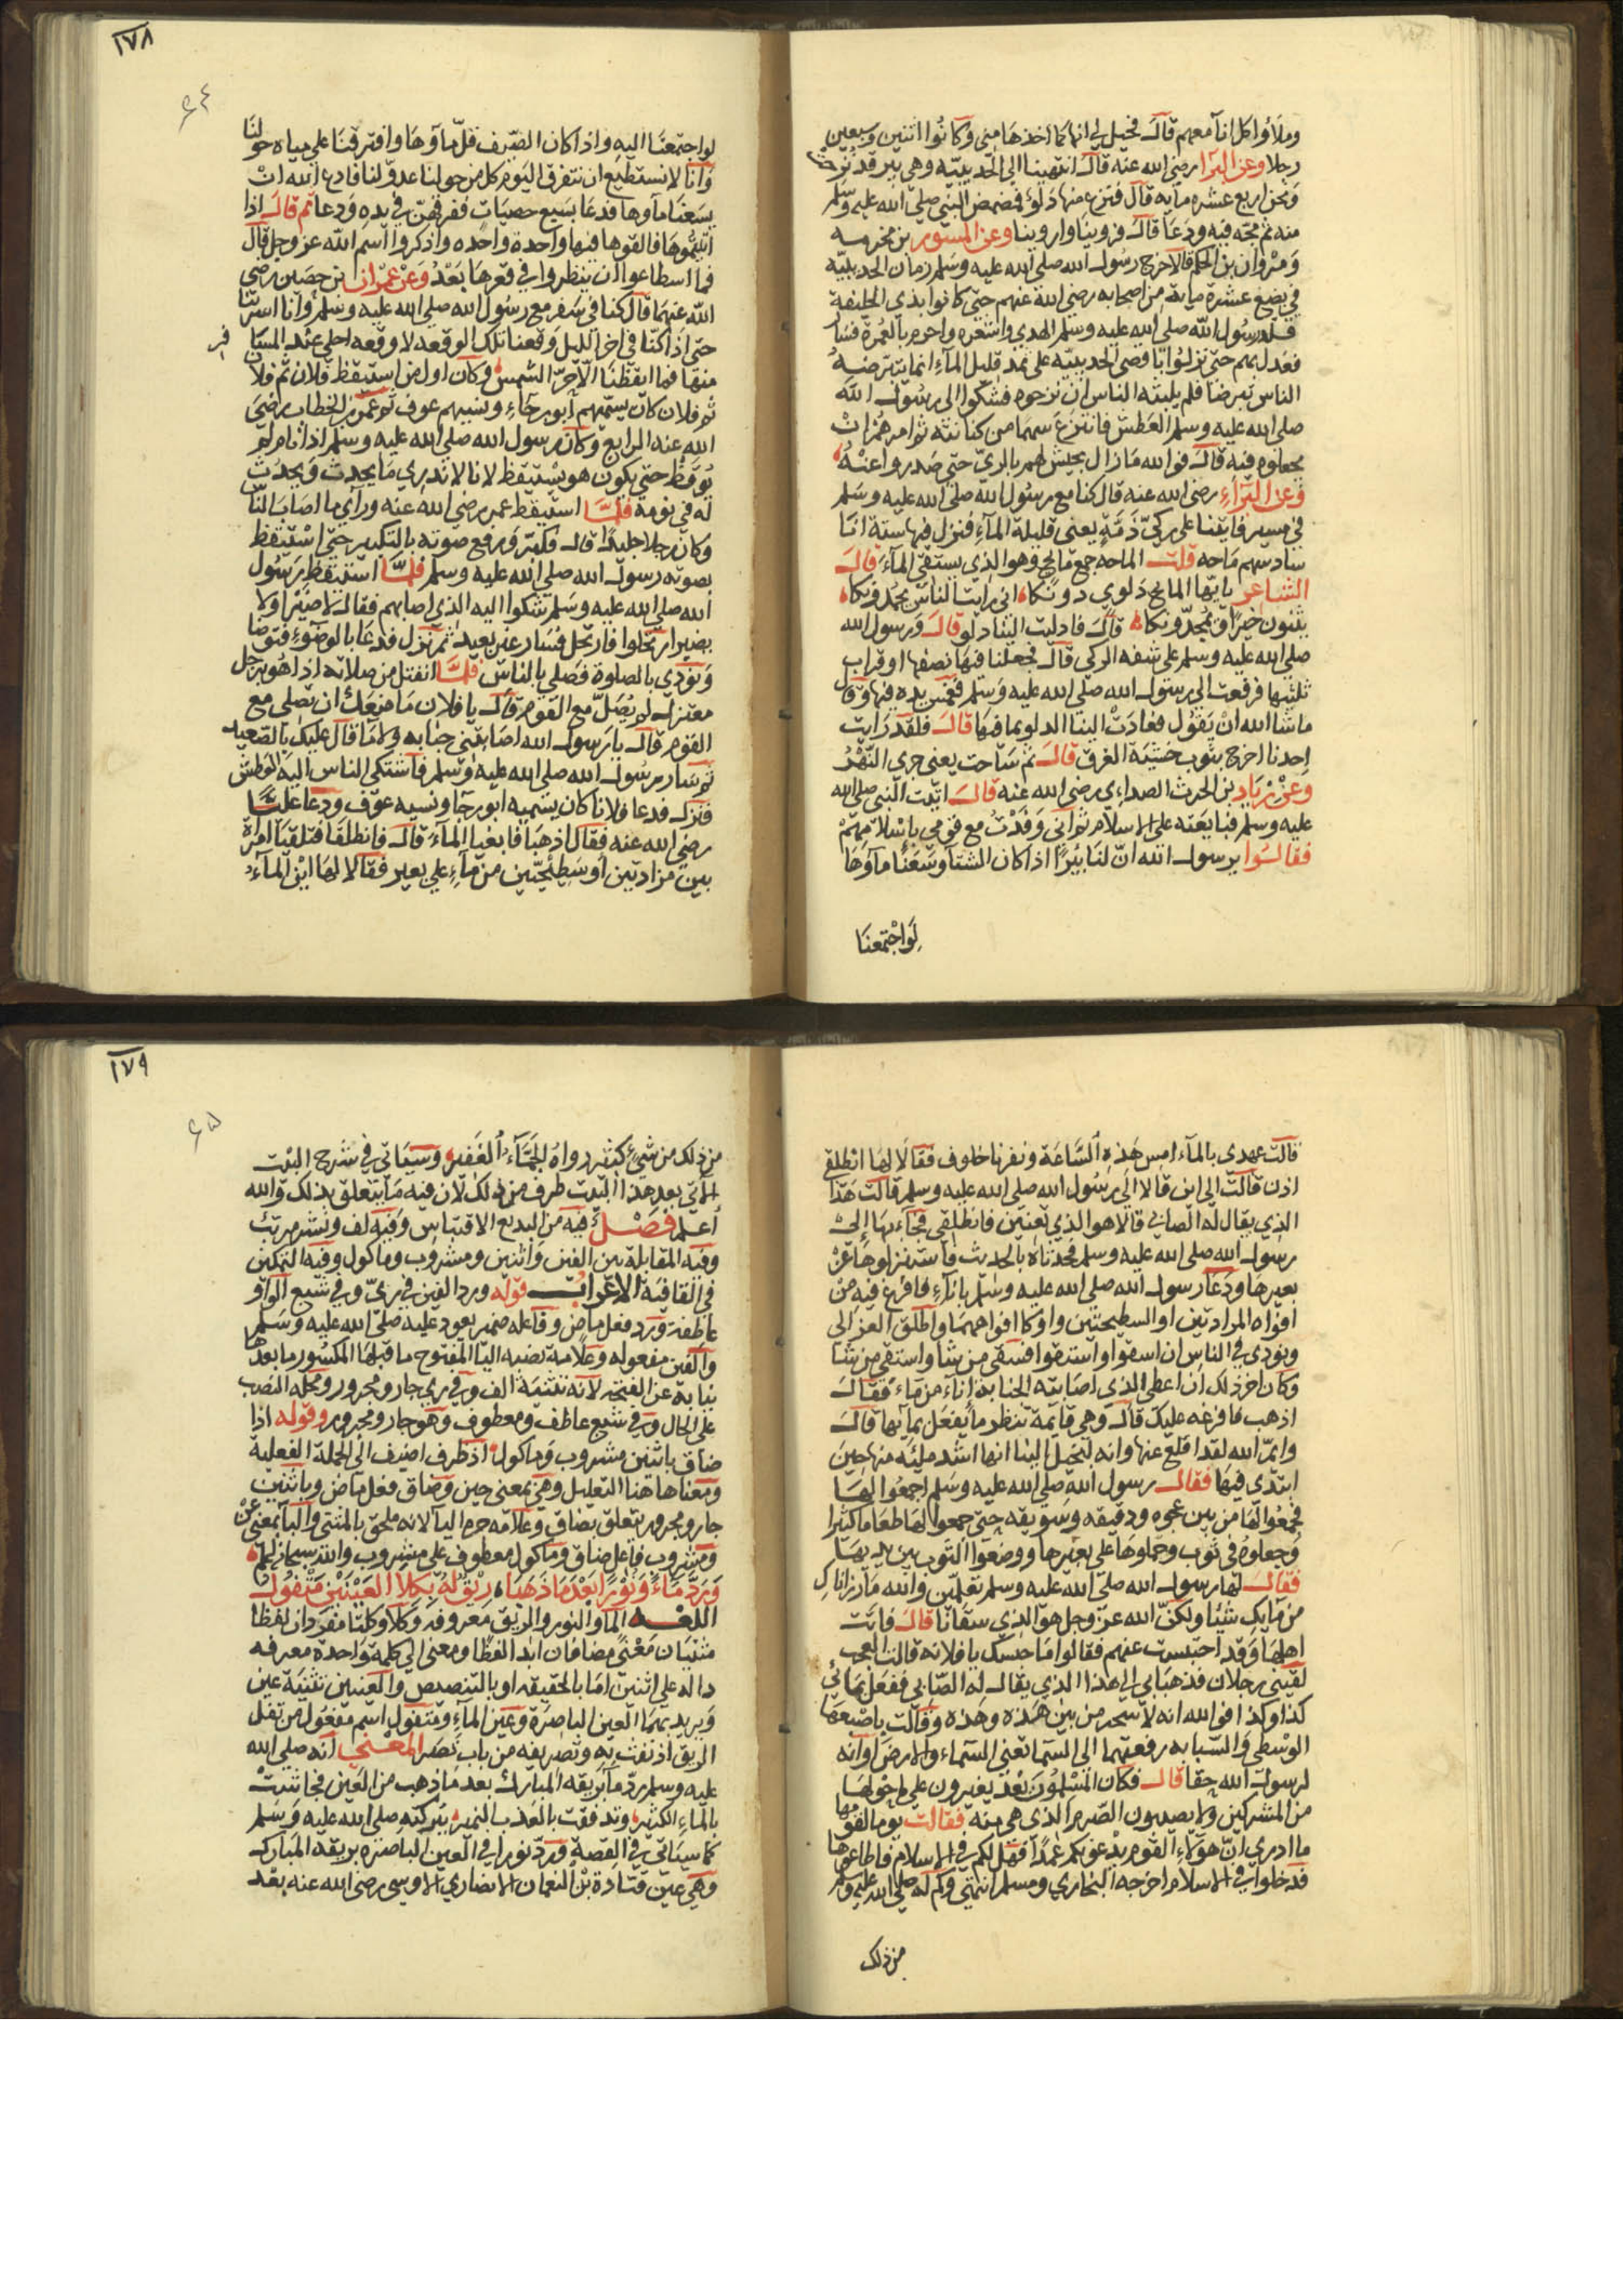 وملاوا كل انا معهم قال فخيل لي انها كما اخذها مني وكانوا اثنين وسبعين
رجلا وعن البرا رضي الله عنه قال انتهينا الي الحديبيه وهي بير قد نزحت
ونحن اربع عشره مايه قال فنزع منها دلو فمضمض النبي صلي الله عليه وسلم
منه ثم مجه فيه ودعا قال فروينا واروينا وعن المسور بن مخرمه
ومروان بن الحكم قالا خرج رسول الله صلي الله عليه وسلم زمان الحديبيه
في بضع عشرة مايه من اصحابه رضي الله عنهم حتي كانوا بذي الحليفة
قلد رسول الله صلي الله عليه وسلم الهدي واشعره واحرم بالعمرة فسار
فعدل بهم حتي نزلوا باقصي الحديبيه علي ثمد قليل الماء انما يتبرضه
الناس تبرضا فلم يلبثه الناس ان نزحوه فشكوا الي رسول الله
صلي الله عليه وسلم العطش فانتزع سهما من كنانته ثم امرهم ان
يجعلوه فيه قال فوالله ما زال يجيش لهم بالري حتي صدروا عنه
وعن البراء رضي الله عنه قال كنا مع رسول الله صلي الله عليه وسلم
في مسير فاتينا علي ركي ذمة يعني قليلة الماء فنزل فيها ستة انا
سادسهم ماحه قلت الماحه جمع مايح وهو الذي يستقي الماء قال
الشاعر يا ايها المايح دلوي دونكا اني رايت الناس يحمدونكا
يثنون خيرا ويمجدونكا قال فادليت الينا دلو قال ورسول الله
صلي الله عليه وسلم علي شفه الركي قال فجعلنا فيها نصفها او قراب
ثلثيها فرفعت الي رسول الله صلي الله عليه وسلم فغمس يده فيها وقال
ما شا الله ان يقول فعادت الينا الدلو بما فيها قال فلقد رايت
احدنا اخرج بثوب خشية الغرق قال ثم ساحت يعني جري النهر
وعن زياد بن الحرث الصداءي رضي الله عنه قال اتيت النبي صلي الله
عليه وسلم فبايعته علي الاسلام ثم اني وفدت مع قومي باسلامهم
فقالوا يرسول الله ان لنا بئرا اذا كان الشتا وسعنا ماوها
لو اجتمعنا
١٧٨
لو اجتمعنا اليه واذا كان الصيف قل ماوها وافترقنا علي مياه حولنا
وانا لا نستطيع ان نتفرق اليوم كل من حولنا عدو لنا فادع الله ان
يسعنا ماوها فدعا بسبع حصيات ففرقهن في يده ودعا ثم قال اذا
اتيتموها فالقوها فيها واحدة واحده واذكروا اسم الله عز وجل قال
فما اسطاعوا ان ينظروا في قعرها بعد وعن عمران بن حصين رضي
الله عنهما قال كنا في سفر مع رسول الله صلي الله عليه وسلم وانا اسرينا
حتي اذا كنا في اخر الليل وقعنا تلك الوقعه لا وقعه احلي عند المسافر
منها فما ايقظنا الا حر الشمس وكان اول من استيقظ فلان ثم فلان
ثم فلان كان يسميهم ابو رجاء ونسيهم عوف ثم عمر بن الخطاب رضي
الله عنه الرابع وكان رسول الله صلي الله عليه وسلم اذا نام لم
نوقظ حتي يكون هو يستيقظ لانا لا ندري ما يحدث ويحدث
له في نومه فلما استيقظ عمر رضي الله عنه وراي ما اصاب الناس
وكان رجلا جليدا قال فكبر ورفع صوته بالتكبير حتي استيقظ
بصوته رسول الله صلي الله عليه وسلم فلما استيقظ رسول
الله صلي الله عليه وسلم شكوا اليه الذي اصابهم فقال لا ضير او لا
يضير ارتحلوا فارتحل فسار غير بعيد ثم نزل فدعا بالوضوء فتوضا
ونودي بالصلوة فصلي بالناس فلما انفتل من صلاته اذا هو برجل
معتزل لم يصل مع القوم قال يا فلان ما منعك ان تصلي مع
القوم قال يا رسول الله اصابتني جنابه ولا ما قال عليك بالصعيد
ثم سار رسول الله صلي الله عليه وسلم فاشتكي الناس اليه العطش
فنزل فدعا فلانا كان يسميه ابو رجا ونسيه عوف ودعا عليا
رضي الله عنه فقال اذهبا فابغيا الماء قال فانطلقا فتلقيا امراة
بين مزادتين او سطيحتين من ماء علي بعير فقالا لها اين الماء
قالت عهدي بالماء امس هذه الساعة ونفرنا خلوف فقالا لها انطلقي
اذن قالت الي اين قالا الي رسول الله صلي الله عليه وسلم قالت هذا
الذي يقال له الصابي قالا هو الذي تعنين فانطلقي فجاء بها الي
رسول الله صلي الله عليه وسلم فحدثاه بالحديث فاستنزلوها عن
بعيرها ودعا رسول الله صلي الله عليه وسلم باناء فافرغ فيه من
افواه المزادتين او السطيحتين واوكا افواههما واطلق العزالي
ونودي في الناس ان اسقوا واستقوا فسقي من شا واستقي من شا
وكان اخر ذلك ان اعطي الذي اصابته الجنابة اناء من ماء فقال
اذهب فافرغه عليك قال وهي قايمة تنظر ما يفعل بمايها قال
وايم الله لقد اقلع عنها وانه ليخيل الينا انها اشد ملئة منها حين
ابتدي فيها فقال رسول الله صلي الله عليه وسلم اجمعوا لها
فجمعوا لها من بين عجوه ودقيقه وسويقه حتي جمعوا لها طعاما كثيرا
وجعلوه في ثوب وحملوها علي بعيرها ووضعوا الثوب بين يديها
فقال لها رسول الله صلي الله عليه وسلم تعلمين والله ما رزاناك
من مايك شيئا ولكن الله عز وجل هو الذي سقانا قال فاتت
اهلها وقد احتبست عنهم فقالوا ما حبسك يا فلانه قالت العجب
لقيني رجلان فذهبا بي الي هذا الذي يقال له الصابي ففعل بمائي
كذا وكذا فوالله انه لاسحر من بين هذه وهذه وقالت باصبعها
الوسطي والسبابه رفعتهما الي السما تعني السماء والارض او انه
لرسول الله حقا قال فكان المسلمون بعد يغيرون علي ما حولها
من المشركين ولا يصيبون الصرم الذي هي منه فقالت يوما لقومها
ما ادري ان هؤلاء القوم يدعونكم عمدا فهل لكم في الاسلام فاطاعوها
فدخلوا في الاسلام اخرجه البخاري ومسلم انتهي وكم له صلي الله عليه وسلم
من ذلك
١٧٩
من ذلك من شيء كثير رواه الجماء الغفير وسيأتي في شرح البيت
الاتي بعد هذا البيت طرف من ذلك لان فيه ما يتعلق بذلك والله
أعلم فصل فيه من البديع الاقتباس وفيه لف ونشر مرتب
وفيه المقابلة بين الفين واثنين ومشروب وماكول وفيه التمكين
في القافية الاعراب قوله ورد الفين في ري وفي شبع الواو
عاطفة ورد فعل ماض وفاعله ضمير يعود عليه صلي الله عليه وسلم
والفين مفعوله وعلامة نصبه اليا المفتوح ما قبلها المكسور ما بعدها
نيابة عن الفتحة لانه تثنية الف وفي ري جار ومجرور ومحله النصب
علي الحال وفي شبع عاطف ومعطوف وهو جار ومجرور وقوله اذا
ضاق باثنين مشروب وماكول اذ ظرف اضيف الي الجملة الفعلية
ومعناها هنا التعليل وهي بمعني حين وضاق فعل ماض وباثنين
جار ومجرور يتعلق بضاق وعلامه جره اليا لانه ملحق بالمثني والبا بمعني عن
ومشروب فاعل ضاق وماكول معطوف علي مشروب والله سبحانه اعلم
ورد ماء ونورا بعد ما ذهبا ريق له بكلا العينين متفول
اللغه الما والنور والريق معروفه وكلا وكلتا مفردان لفظا
مثنيان معني مضافان ابدا لفظا ومعني الي كلمة واحدة معرفه
داله علي اثنين اما بالحقيقه او بالتنصيص والعينين تثنية عين
ويريد بهما العين الباصرة وعين الماء ومتفول اسم مفعول من تفل
الريق اذ نفث به وتصريفه من باب نصر المعني انه صلي الله
عليه وسلم رد ما بريقه المبارك بعد ما ذهب من العين فجاشت
بالماء الكثير وتدفقت بالعذب النمير ببركته صلي الله عليه وسلم
كما سيأتي في القصة ورد نورا في العين الباصره بريقه المبارك
وهي عين قتادة بن النعمان الانصاري الاوسي رضي الله عنه بعد